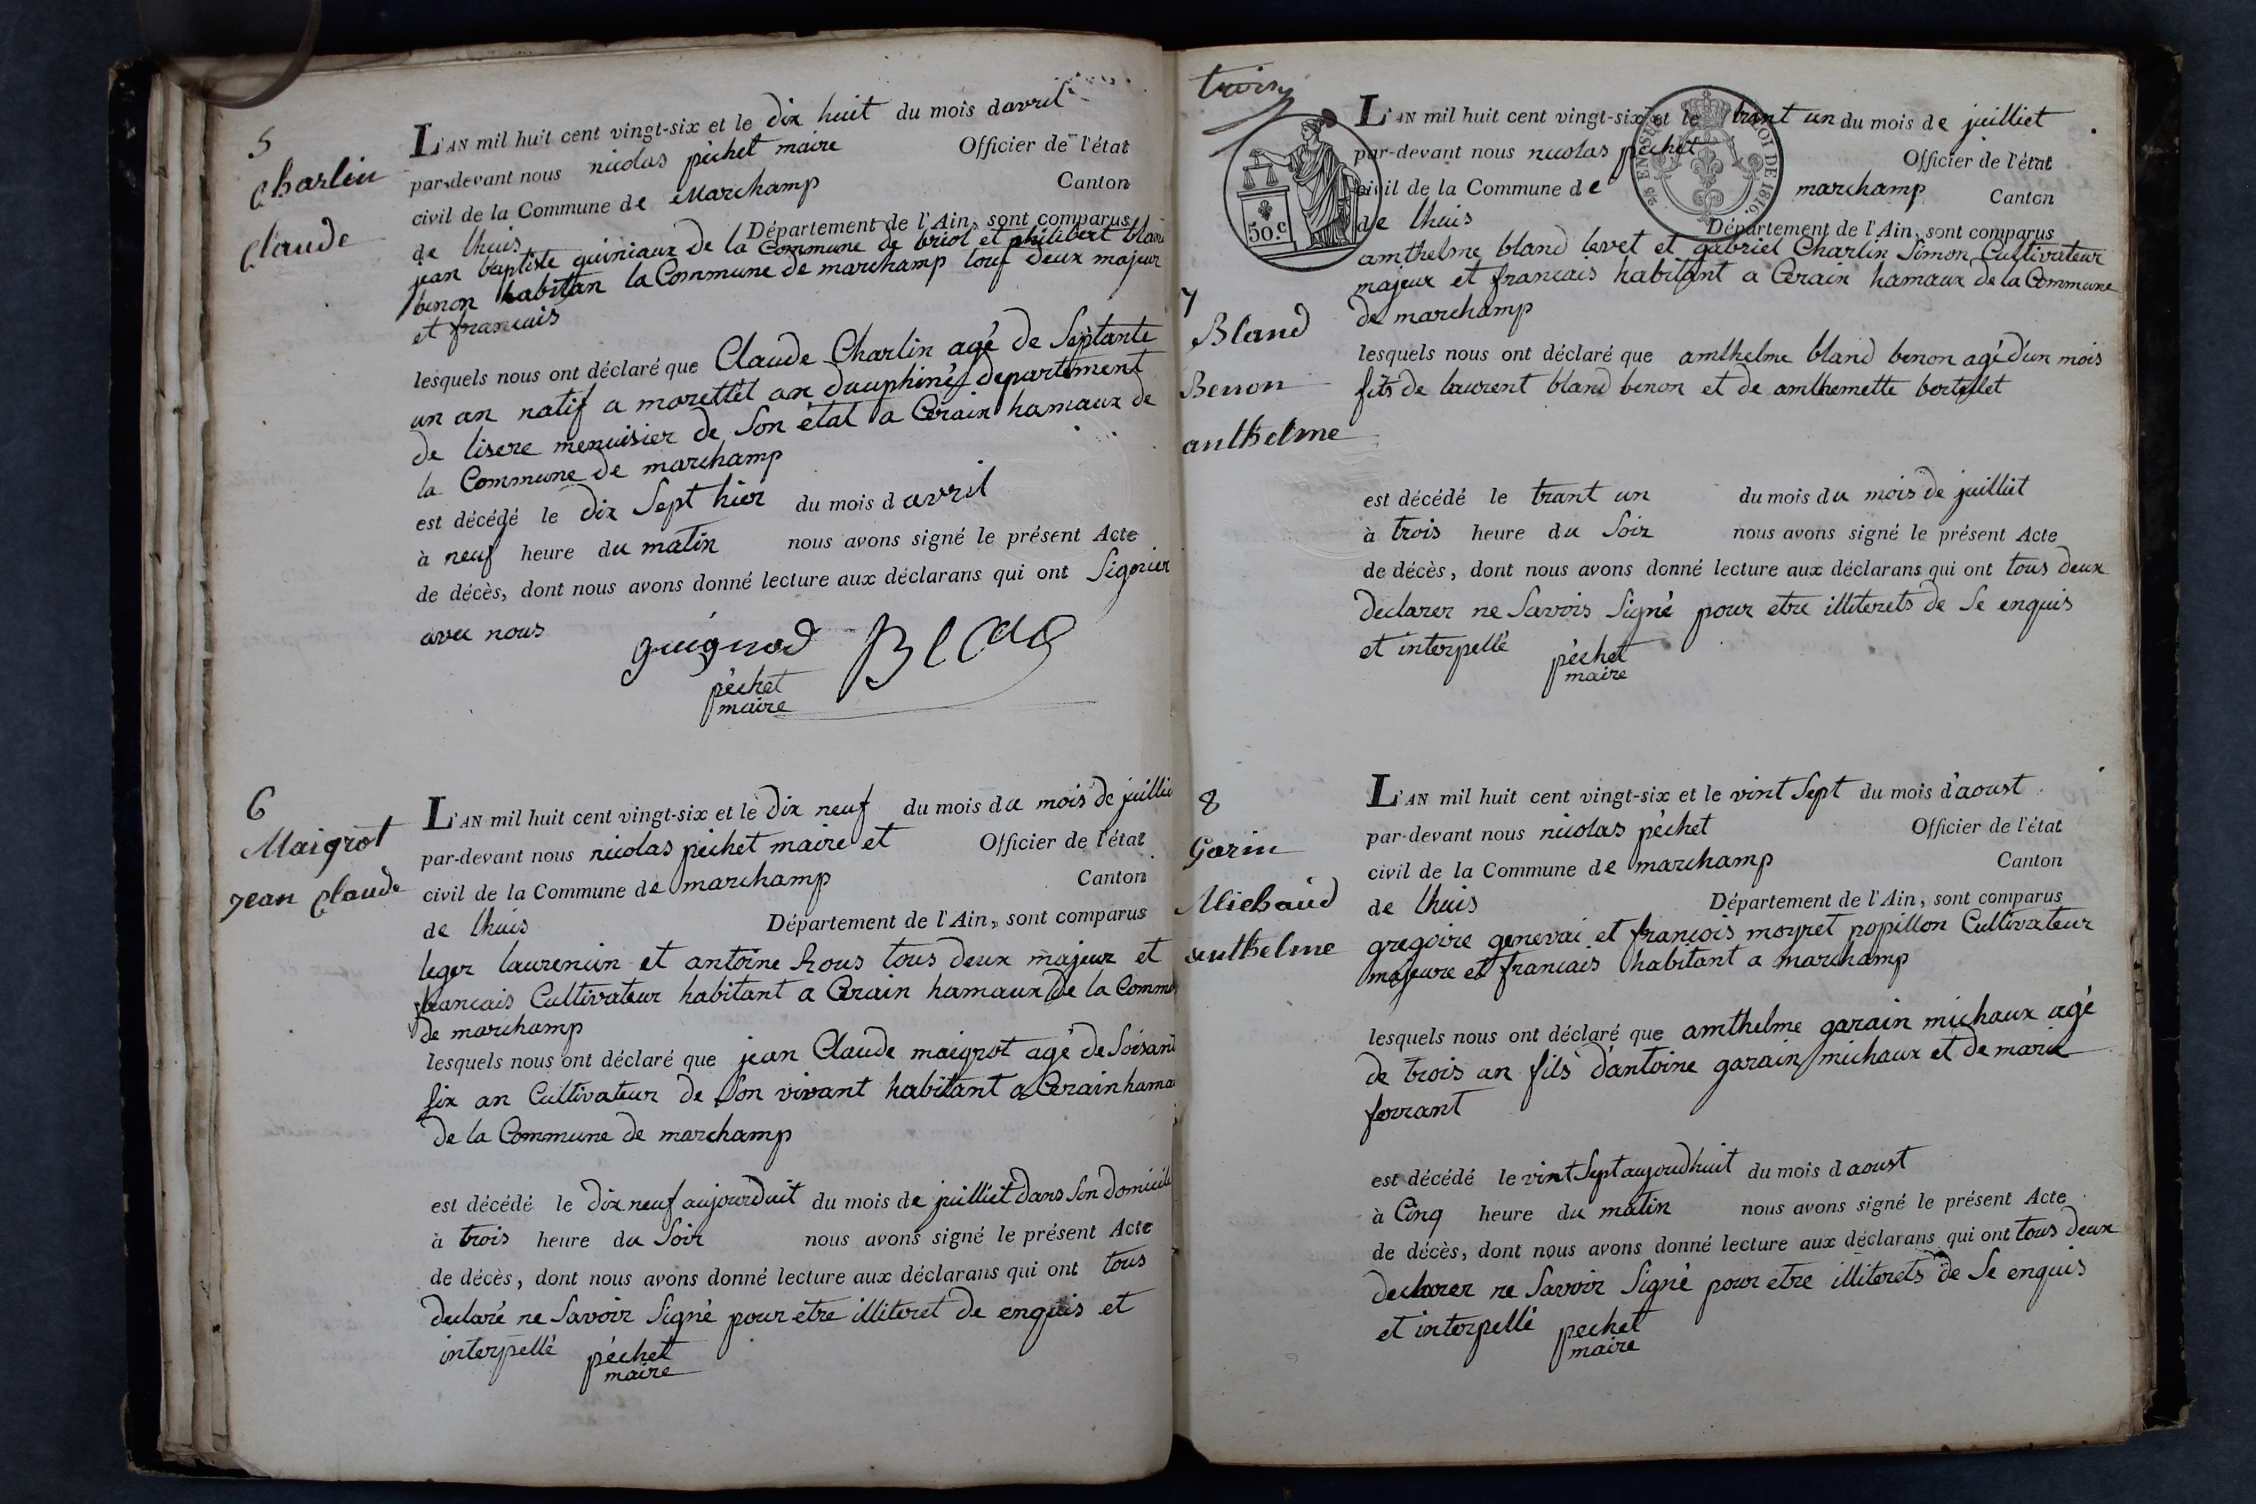 5
Charlin
Claude
L'AN mil huit cent vingt-six et le dix huit du mois davril
par-devant nous nicolas péchet maire Officier de l'état
civil de la Commune de Marchamp Canton
de lhuis Département de l'Ain, sont comparus
jean baptiste guiniaux de la Commune de briol et philibert bland
benon habitan la Commune de marchamp touf deux majeur
et francais
lesquels nous ont déclaré que Claude Charlin agé de Septante
un an natif a morettêt an dauphiné departement
de lisere menuisier de Son état a Cerain hamaux de
la Commune de marchamp
est décédé le dix Sept hier du mois d avril
à neuf heure du matin nous avons signé le présent Acte
de décès, dont nous avons donné lecture aux déclarans qui ont Signier
avec nous
guignod
péchet
maire
6
Maigrot
jean Claude
L'AN mil huit cent vingt-six et le dix neuf du mois du mois de juilliet
par-devant nous nicolas péchet maire et Officier de l'état
civil de la Commune de marchamp Canton
de lhuis Département de l'Ain, sont comparus
leger laurencin et antoine Rous tous deux majeur et
francais Cultivateur habitant a Cerain hamaux de la Comm
de marchamp
lesquels nous ont déclaré que jean Claude maigrot agé de Soisant
six an Cultivateur de Son vivant habitant a Cerain hama
de la Commune de marchamp
est décédé le dix neuf aujourduit du mois de juilliet dans Son domicile
à trois heure du Soir nous avons signé le présent Acte
de décès, dont nous avons donné lecture aux déclarans qui ont tous
declaré ne Savoir Signé pour etre illiteret de enquis et
interpellé péchet
maire
trois
50.c
25 EN SUS LOI DE 1816.
7
Bland
Benon
anthelme
L'AN mil huit cent vingt-six et le trant un du mois de juilliet
par-devant nous nicolas péchet Officier de l'état
civil de la Commune de marchamp Canton
de lhuis Département de l'Ain, sont comparus
amthelme bland levet et gabriel Charlin Simon Cultivateur
majeur et francais habitant a Cerain hamaux de la Commune
de marchamp
lesquels nous ont déclaré que amthelme bland benon agé d'un mois
fils de laurent bland benon et de amthemette bertellet
est décédé le trant un du mois du mois de juilliet
à trois heure du Soir nous avons signé le présent Acte
de décès, dont nous avons donné lecture aux déclarans qui ont tous deux
declarer ne Savois Signé pour etre illiterets de Se enquis
et interpellé péchet
maire
8
Garin
Michaud
anthelme
L'AN mil huit cent vingt-six et le vint Sept du mois d'aoust
par-devant nous nicolas péchet Officier de l'état
civil de la Commune de marchamp Canton
de lhuis Département de l'Ain, sont comparus
gregoire genevai et francois moyret popillon Cultivateur
majeure et francais habitant a marchamp
lesquels nous ont déclaré que amthelme garain michaux agé
de trois an fils d'antoine garain michaux et de marie
ferrant
est décédé le vint Sept aujoudhuit du mois d aoust
à Cinq heure du matin nous avons signé le présent Acte
de décès, dont nous avons donné lecture aux déclarans qui ont tous deux
declarer ne Savoir Signé pour etre illiterets de Se enquis
et interpellé pechet
maire